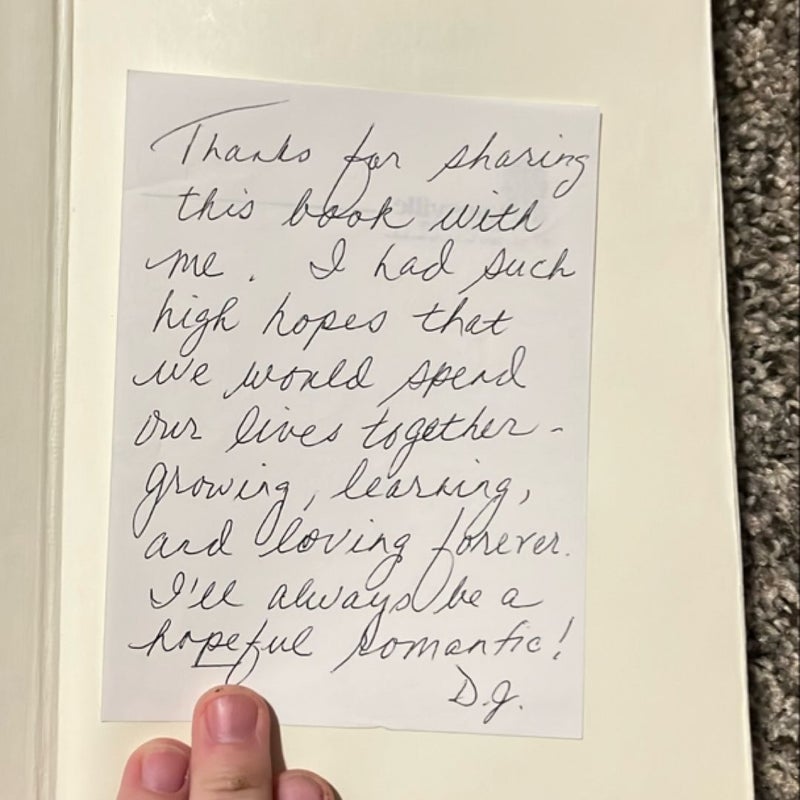 Thanks for sharing
this book with
me. I had such
high hopes that
we would spend
our lives together -
growing, learning,
and loving forever.
I'll always be a
hopeful romantic!
D.J.